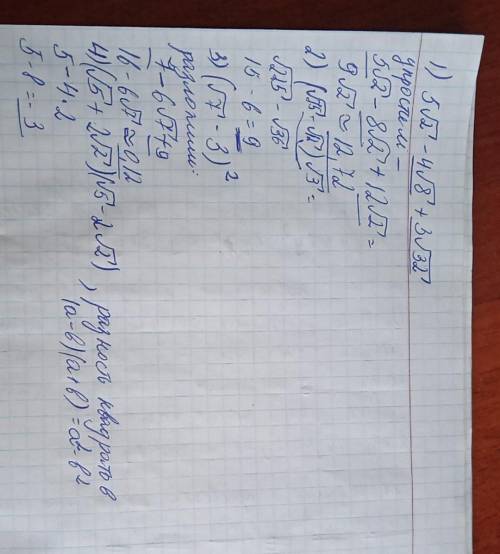 1) 5√2 - 4√8 + 3√32
упростим -
5√2 - 8√2 + 12√2 =
9√2 ≈ 12,72
2) (√75 - √12)√3 =
√225 - √36
15 - 6 = 9
3) (√7 - 3)²
разложим:
7 - 6√7 + 9
16 - 6√7 ≈ 0,12
4) (√5 + 2√2)(√5 - 2√2), разность квадратов
5 - 4·2 (a-b)(a+b) = a² - b²
5 - 8 = -3